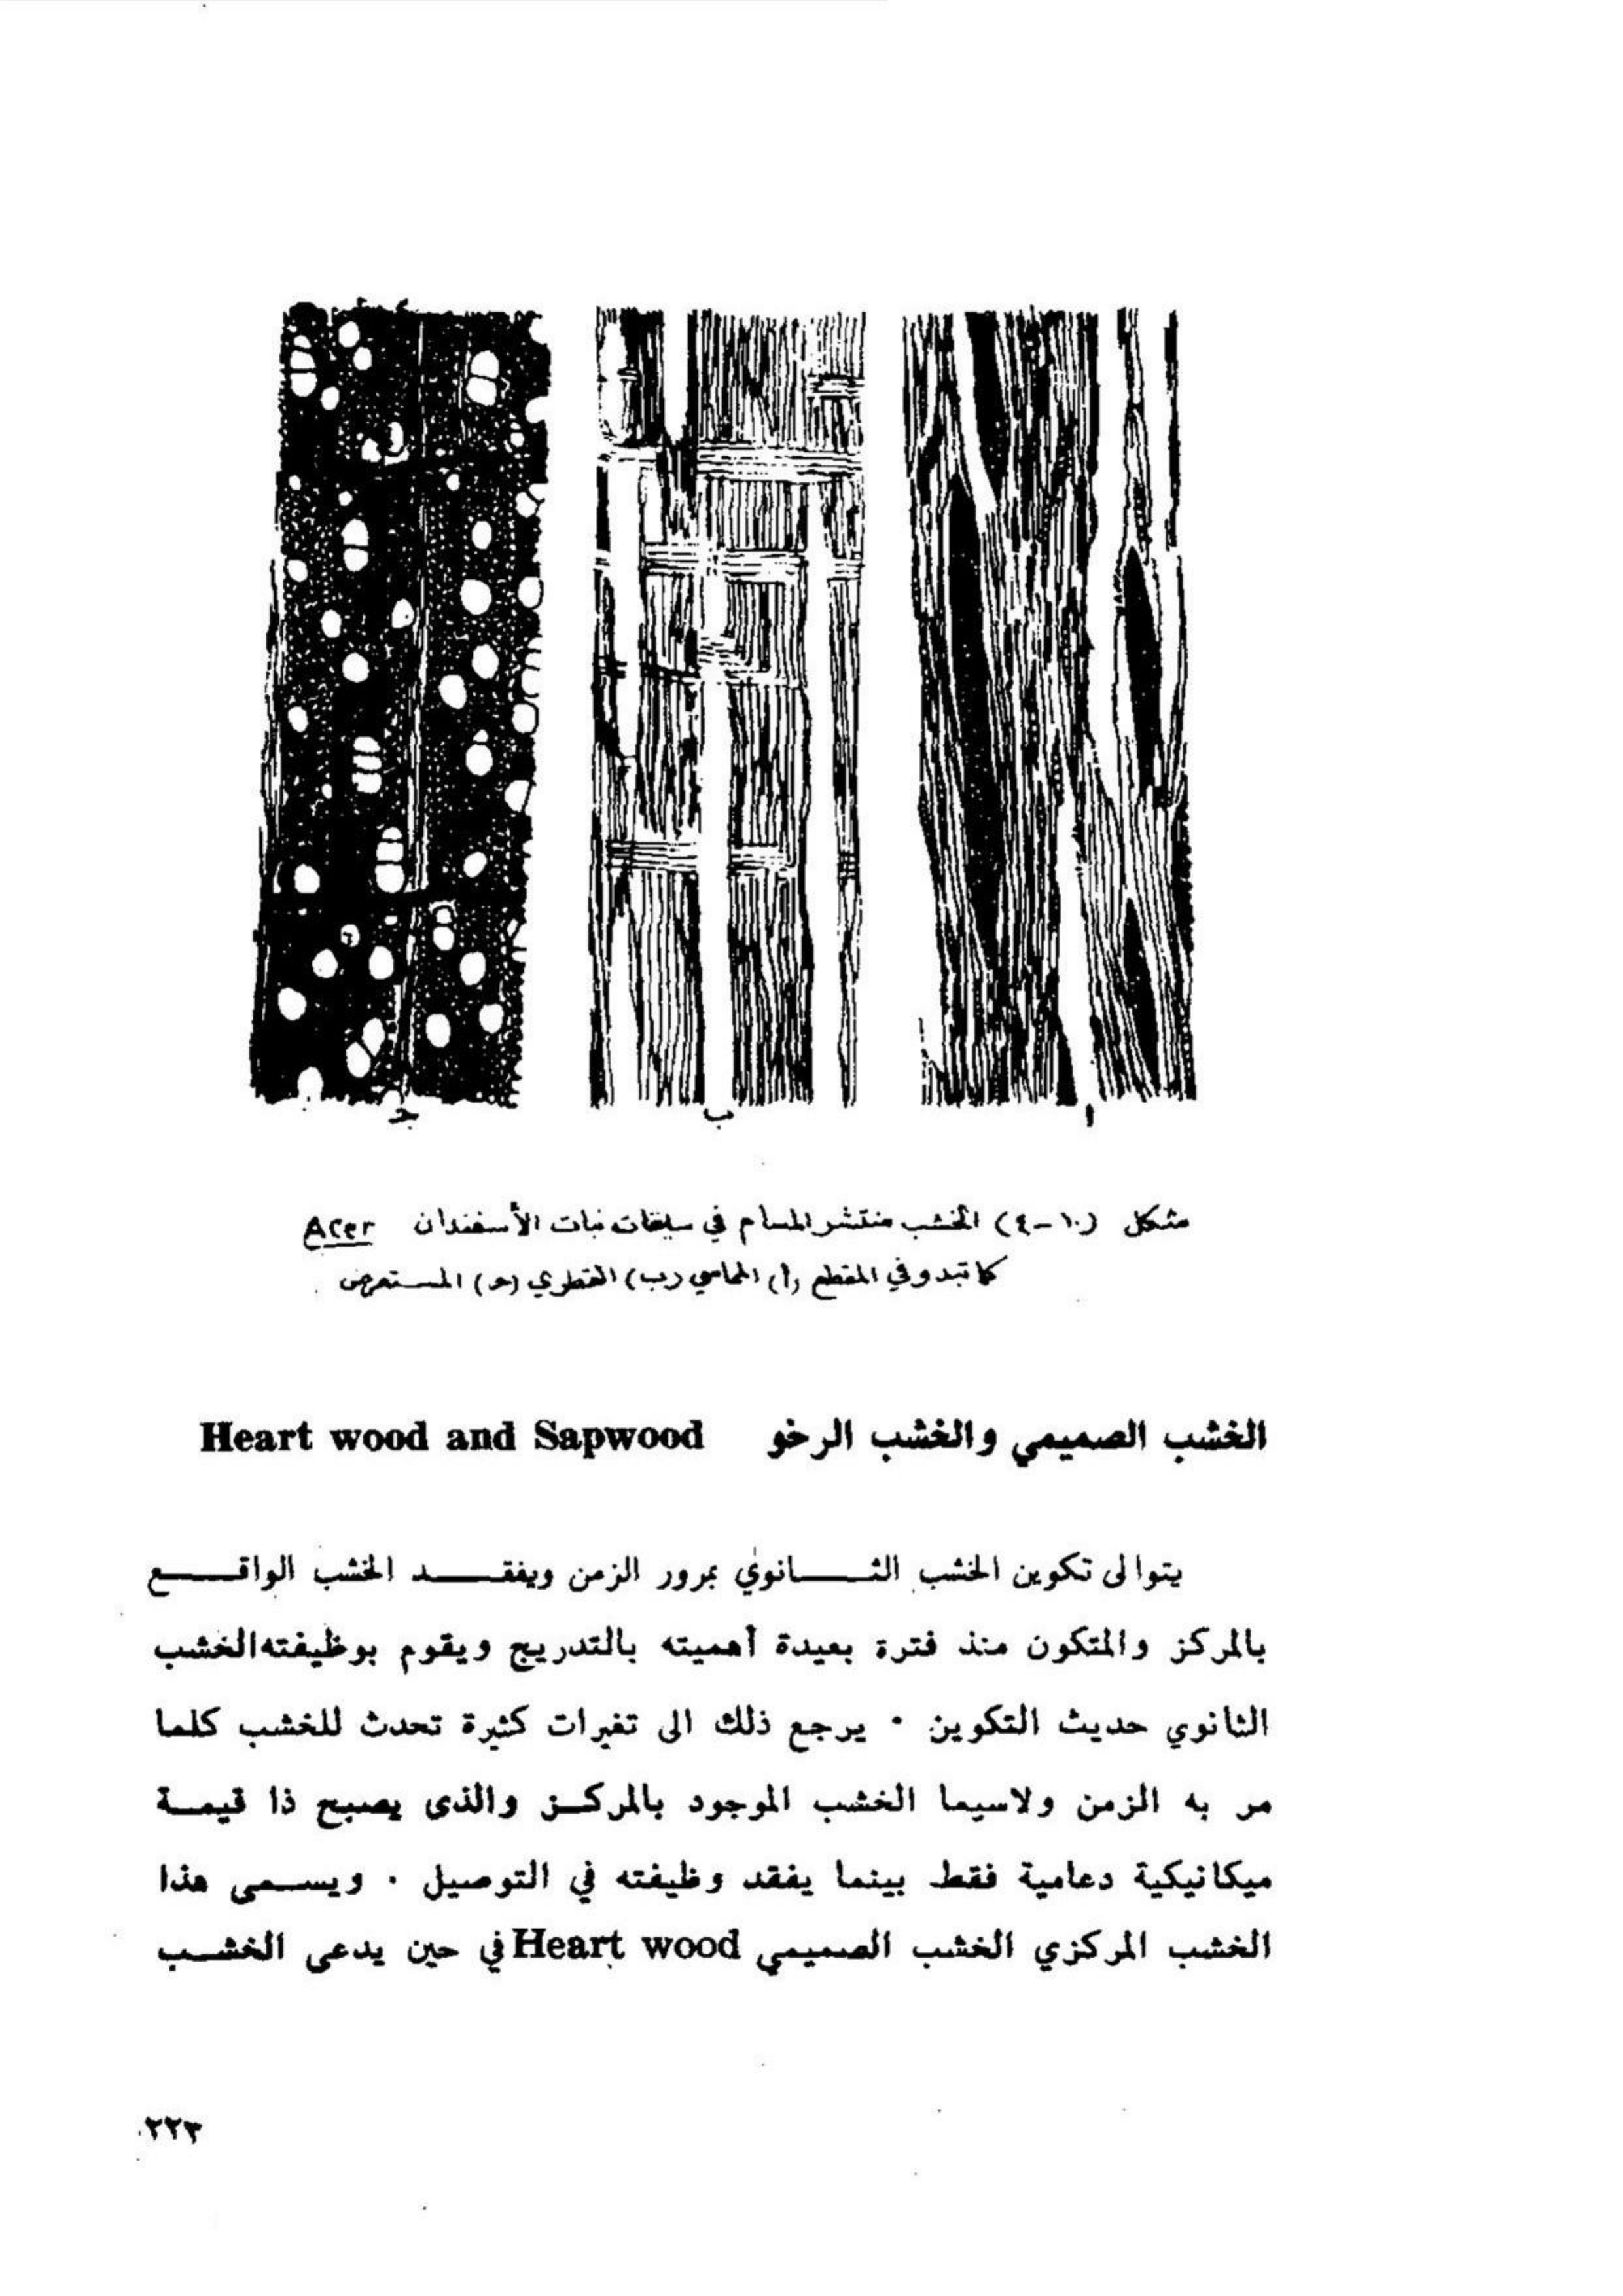 ا ب جـ
شكل (١٠-٤) الخشب منتشر المسام في سيقان نبات الأسفندان Acer
كما تبدو في المقطع (أ) المماسي (ب) القطري (جـ) المستعرض .
الخشب الصميمي والخشب الرخو Heart wood and Sapwood
يتوالى تكوين الخشب الثـــانوي بمرور الزمن ويفقـــد الخشب الواقـــع
بالمركز والمتكون منذ فترة بعيدة أهميته بالتدريج ويقوم بوظيفته الخشب
الثانوي حديث التكوين . يرجع ذلك الى تغيرات كثيرة تحدث للخشب كلما
مر به الزمن ولاسيما الخشب الموجود بالمركـز والذى يصبح ذا قيمـة
ميكانيكية دعامية فقط بينما يفقد وظيفته في التوصيل . ويسـمى هذا
الخشب المركزي الخشب الصميمي Heart wood في حين يدعى الخشـب
٢٢٣